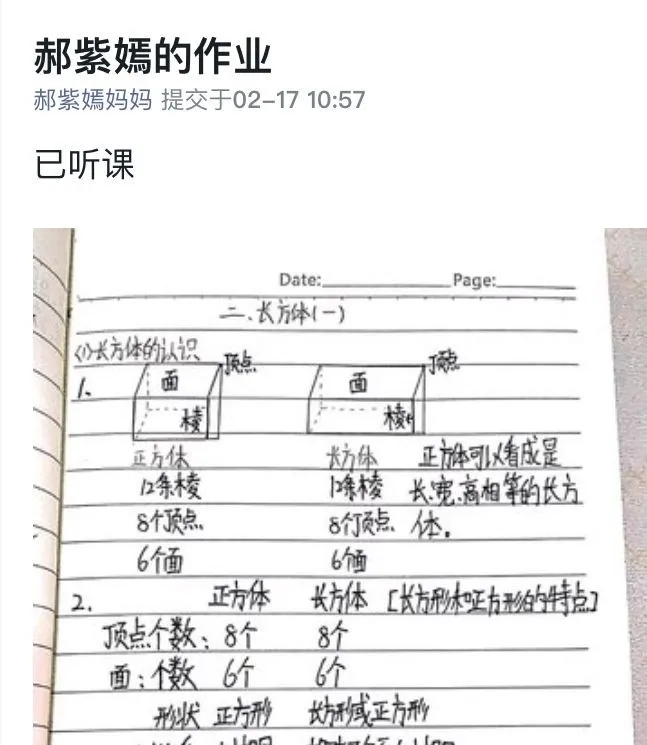 郝紫嫣的作业
郝紫嫣妈妈 提交于02-17 10:57
已听课
Date: Page:
二、长方体(一)
(1)长方体的认识
顶点 顶点
1、 面 面
棱 棱
正方体 长方体 正方体可以看成是
12条棱 12条棱 长、宽、高相等的长方
8个顶点 8个顶点 体。
6个面 6个面
2. 正方体 长方体 [长方形和正方形的特点]
顶点个数：8个 8个
面：个数 6个 6个
形状 正方形 长方形或正方形